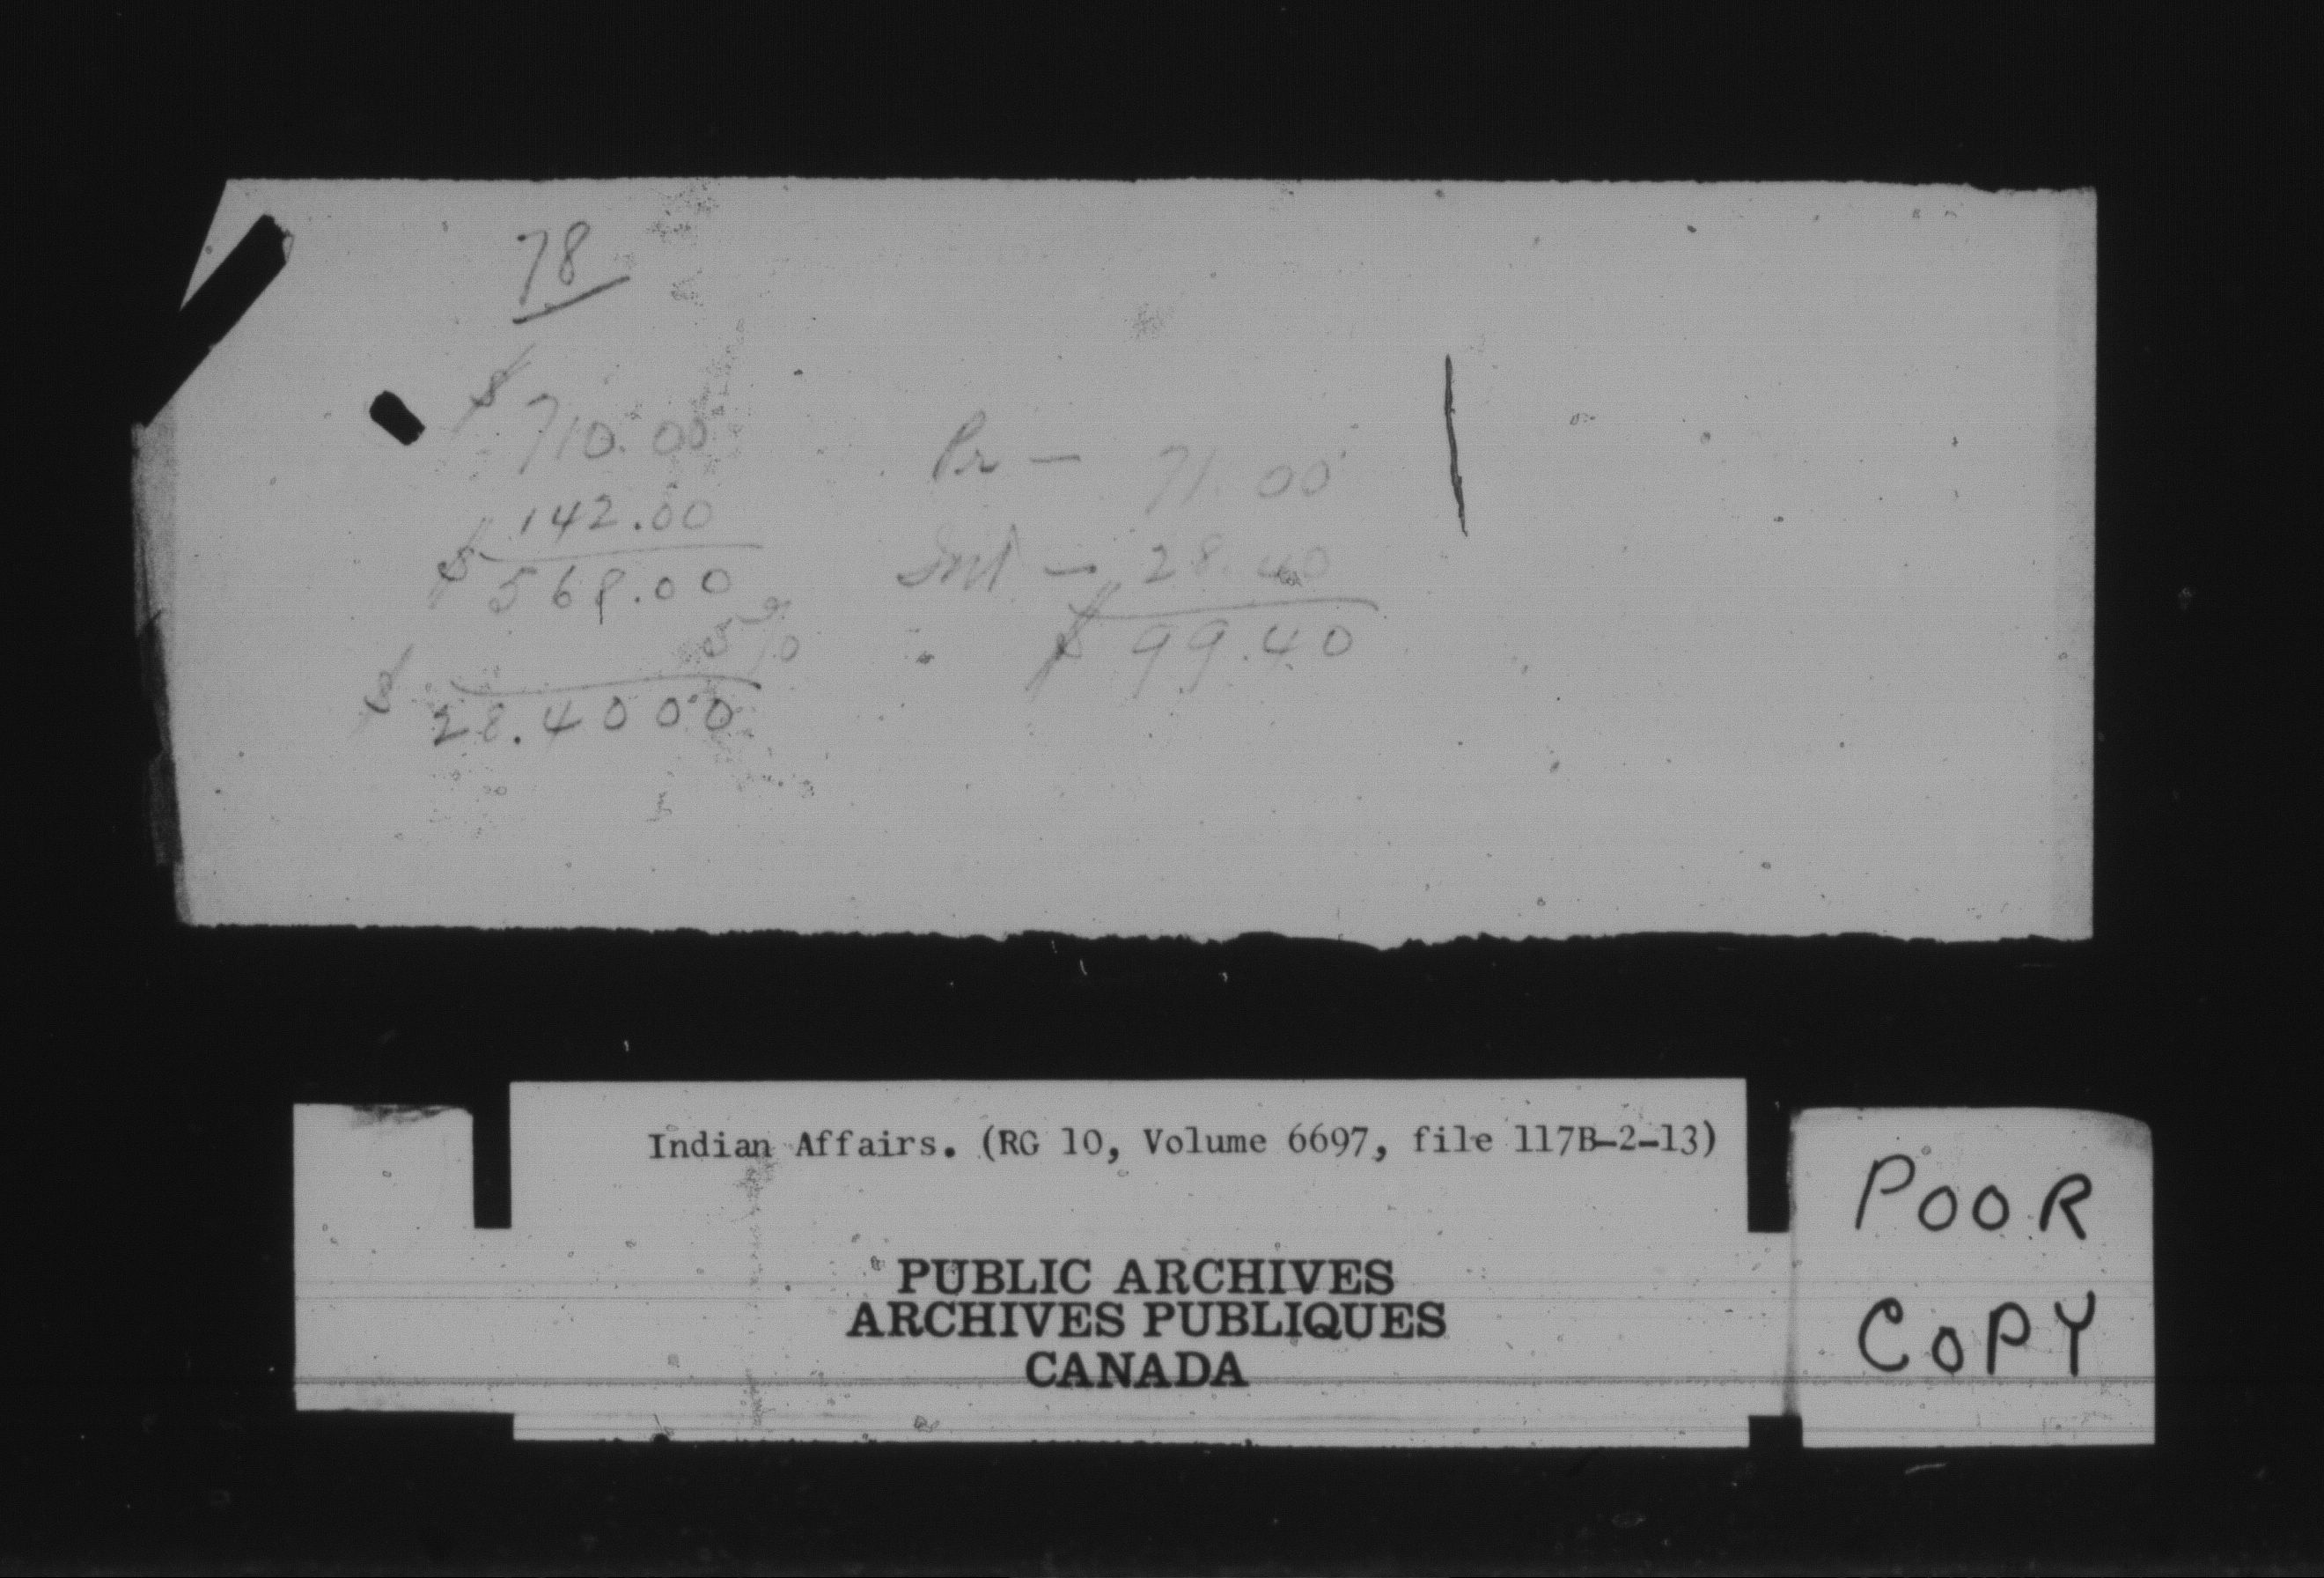 78
$ 710.00
142.00
$ 568.00
5%
$ 28.4000
Pr — 71.00
Int — 28.40
$ 99.40
Indian Affairs. (RG 10, Volume 6697, file 117B-2-13)
PUBLIC ARCHIVES
ARCHIVES PUBLIQUES
CANADA
POOR
COPY